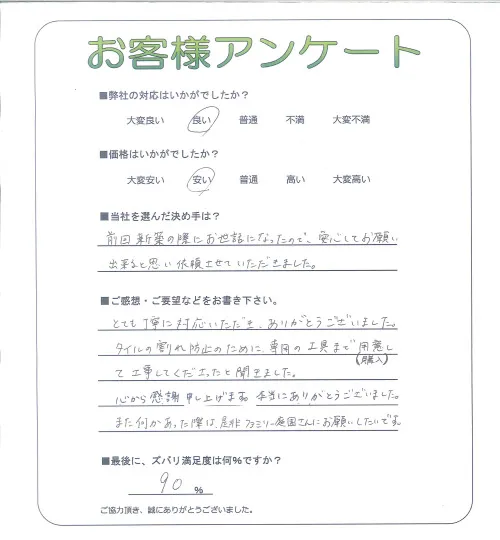 お客様アンケート
■弊社の対応はいかがでしたか?
大変良い 良い 普通 不満 大変不満
■価格はいかがでしたか?
大変安い 安い 普通 高い 大変高い
■当社を選んだ決め手は?
前回新築の際にお世話になったので、安心してお願い
出来ると思い依頼させていただきました。
■ご感想・ご要望などをお書き下さい。
とても丁寧に対応いただき、ありがとうございました。
タイルの割れ防止のために、専用の工具まで用意し
(購入)
て工事してくださったと聞きました。
心から感謝申し上げます。本当にありがとうございました。
また何かあった際は、是非ファミリー庭園さんにお願いしたいです。
■最後に、ズバリ満足度は何%ですか?
90 %
ご協力頂き、誠にありがとうございました。